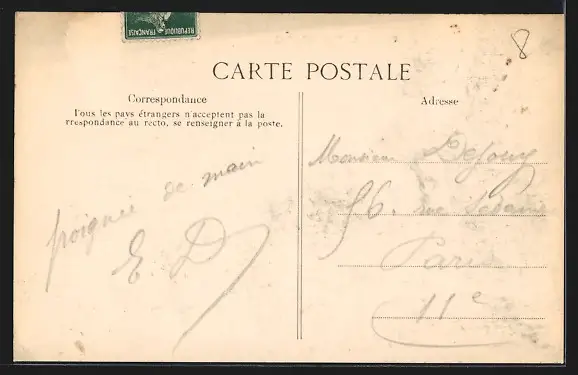 REPUBLIQUE FRANÇAISE
8
CARTE POSTALE
Correspondance
Tous les pays étrangers n'acceptent pas la
rrespondance au recto, se renseigner à la poste.
Adresse
poignée de main
E. D
Monsieur
56. rue Sedaine
Paris
11e